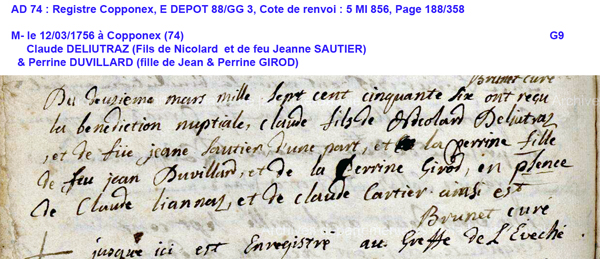 AD 74 : Registre Copponex, E DEPOT 88/GG 3, Cote de renvoi : 5 MI 856, Page 188/358
M- le 12/03/1756 à Copponex (74) G9
Claude DELIUTRAZ (Fils de Nicolard et de feu Jeanne SAUTIER)
& Perrine DUVILLARD (fille de Jean & Perrine GIROD)
Brunet curé
Du deuzieme mars mille sept cent cinquante six ont reçu
la benediction nuptiale, claude fils de Nicolard Deliutraz
, et de füe jeane Sautier d'une part, et la perrine fille
de feu jean Duvillard, et de la perrine Girod, en plence
de Claude liannaz, et de claude Cartier ainsi est
Brunet curé
jusque ici est Enregistré au Greffe de L'Eveché